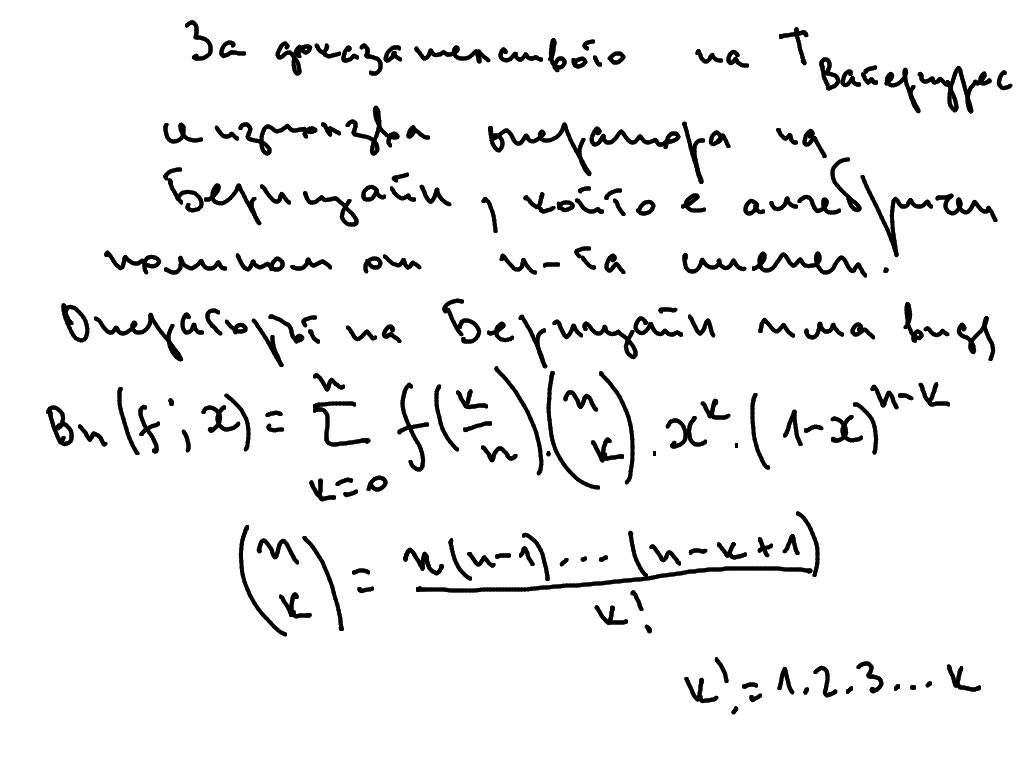 За доказателството на T Вайерщрас
се използва оператора на
Бернщайн, който е алгебричен
полином от n-та степен.
Операторът на Бернщайн има вида
Bn(f; x) = ∑_{k=0}^{n} f(k/n).(n k).x^k.(1-x)^{n-k}
(n k) = n(n-1)...(n-k+1) / k!
k! = 1.2.3...k